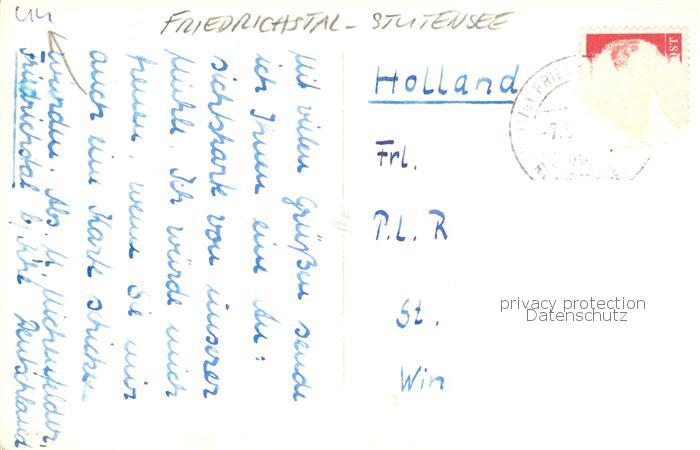 FRIEDRICHSTAL - STUTENSEE
Mit vielen Grüßen sende
ich Ihnen eine An:
sichtskarte von unserer
Mühle. Ich würde mich
freuen, wenn Sie mir
auch eine Karte schicken
würden. Abs. U. Michenfelder,
Friedrichstal b/Khe Deutschland
Holland
Frl.
P.L. R
St.
Win
privacy protection
Datenschutz